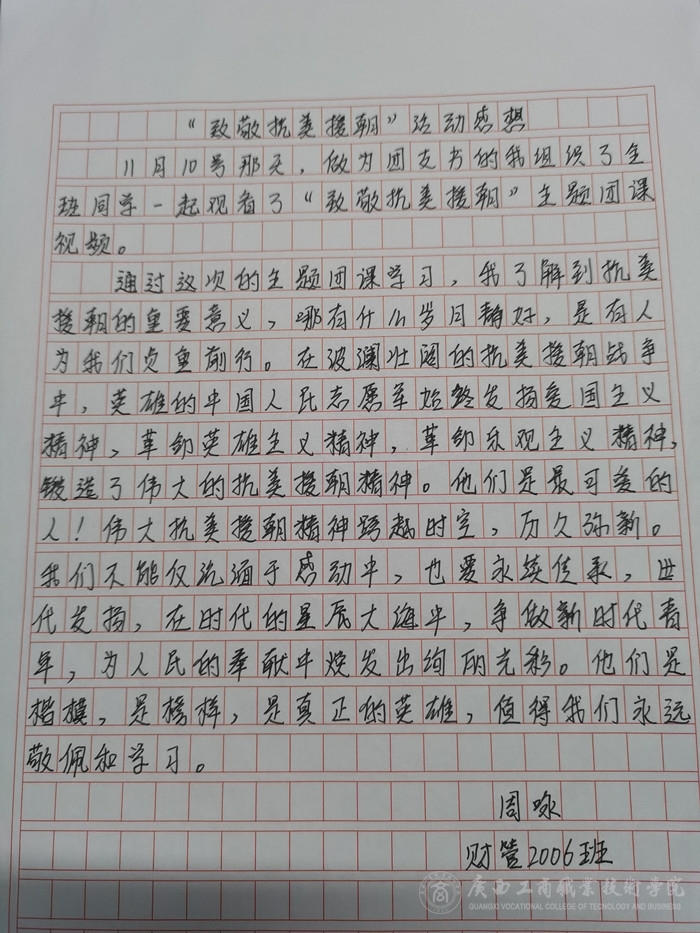 “致敬抗美援朝”活动感想
11月10号那天，做为团支书的我组织了全
班同学一起观看了“致敬抗美援朝”主题团课
视频。
通过这次的主题团课学习，我了解到抗美
援朝的重要意义，哪有什么岁月静好，是有人
为我们负重前行。在波澜壮阔的抗美援朝战争
中，英雄的中国人民志愿军始终发扬爱国主义
精神，革命英雄主义精神，革命乐观主义精神，
锻造了伟大的抗美援朝精神。他们是最可爱的
人！伟大抗美援朝精神跨越时空，历久弥新。
我们不能仅沉涌于感动中，也要永续传承，世
代发扬，在时代的星辰大海中，争做新时代青
年，为人民的奉献中焕发出绚丽光彩。他们是
楷模，是榜样，是真正的英雄，值得我们永远
敬佩和学习。
周咏
财管2006班
广西工商职业技术学院
GUANGXI VOCATIONAL COLLEGE OF TECNOLOGY AND BUSINESS